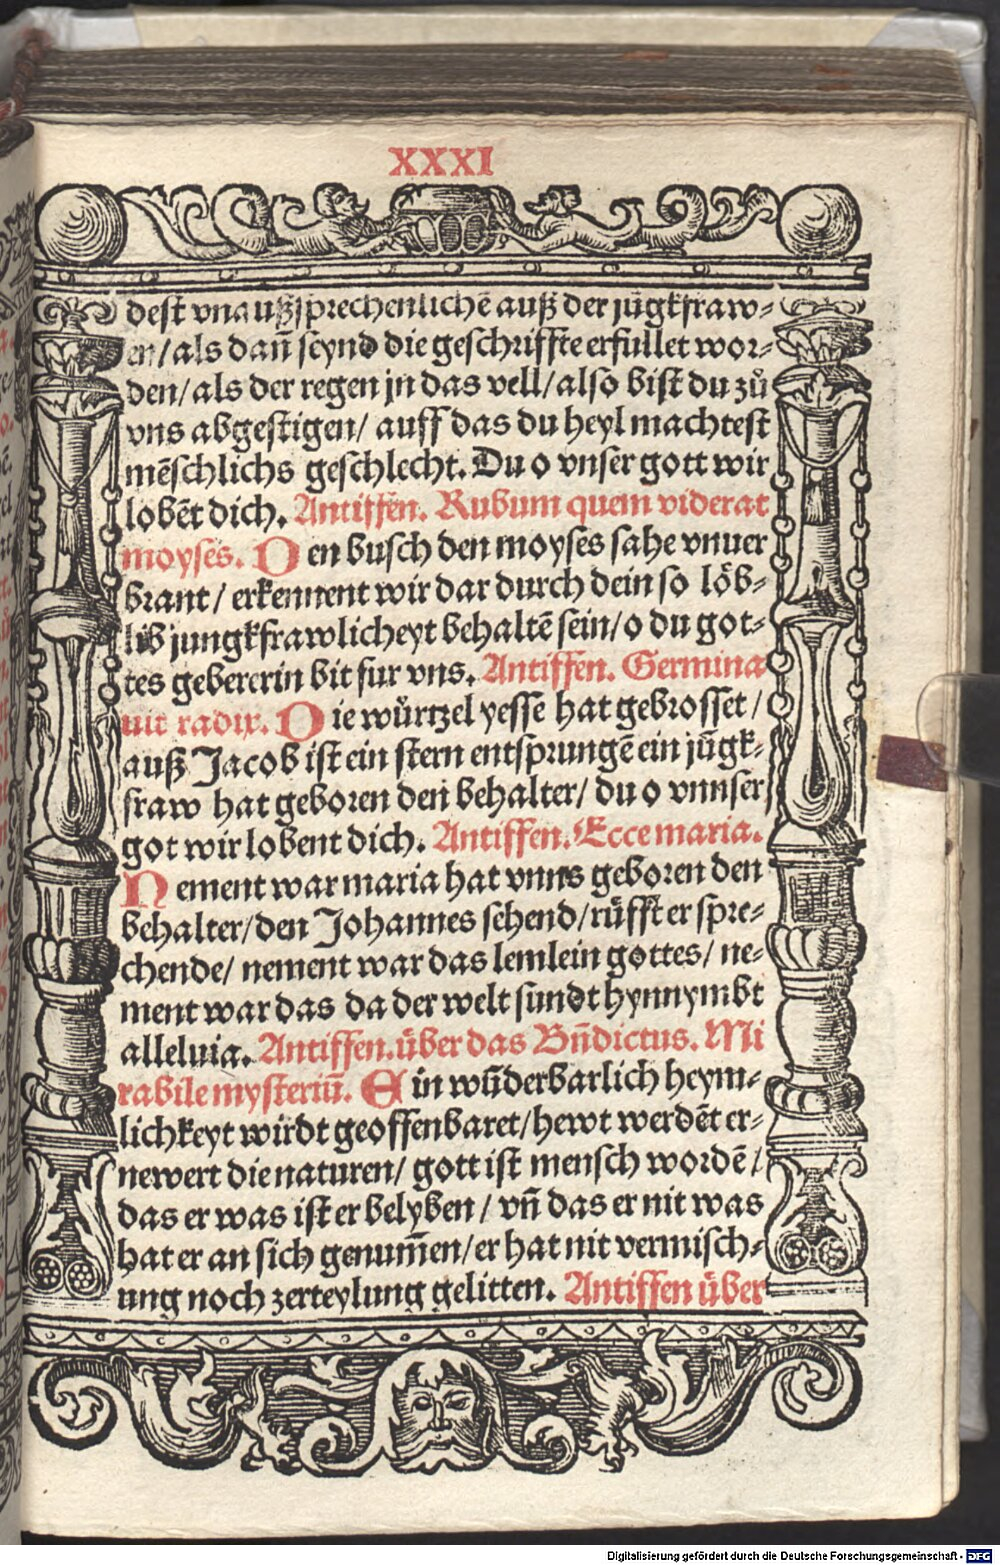 XXXI
dest vnaußsprechenlichē auß der jūgkfraw⸗
en/ als dañ seynd die geschriffte erfullet wor⸗
den/ als der regen jn das vell/ also bist du zů
vns abgestigen/ auff das du heyl machtest
mēschlichs geschlecht. Du o vnser gott wir
lobēt dich. Antiffen. Rubum quem viderat
moyses. Den busch den moyses sahe vnuer
brant/ erkennent wir dar durch dein so lôb⸗
lib jungkfrawlicheyt behaltē sein/ o du got⸗
tes gebererin bit fur vns. Antiffen. Germina
uit radix. Die wůrtzel yesse hat gebrosset/
auß Jacob ist ein stern entsprungē ein jūgk⸗
fraw hat geboren den behalter/ du o vnnser
got wir lobent dich. Antiffen. Ecce maria.
Nement war maria hat vnns geboren den
behalter/ den Johannes sehend/ rüfft er spre⸗
chende/ nement war das lemlein gottes/ ne⸗
ment war das da der welt sündt hynnymbt
alleluia. Antiffen. über das Bñdictus. Mi
rabile mysteriū. Ein wūderbarlich heym⸗
lichkeyt wirdt geoffenbaret/ hewt werdēt er⸗
newert die naturen/ gott ist mensch wordē/
das er was ist er belyben/ vñ das er nit was
hat er an sich genum̄en/ er hat nit vermisch⸗
ung noch zerteylung gelitten. Antiffen über
Digitalisierung gefördert durch die Deutsche Forschungsgemeinschaft - DFG